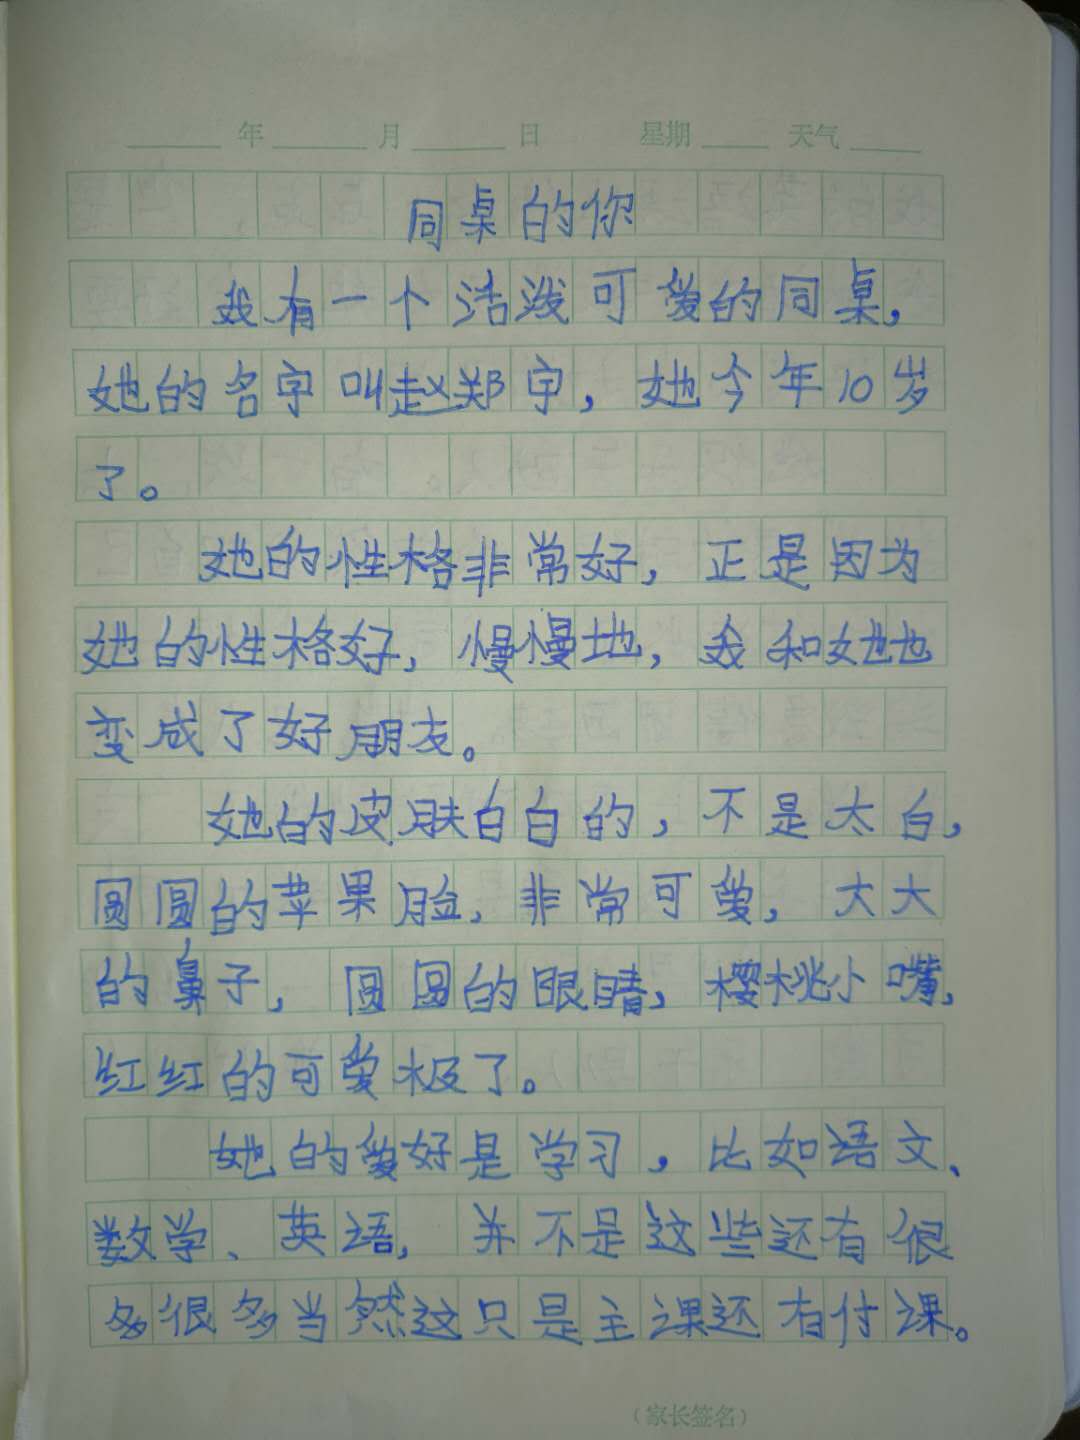 年 月 日 星期 天气
同桌的你
我有一个活泼可爱的同桌，
她的名字叫赵郑宇，她今年10岁
了。
她的性格非常好，正是因为
她的性格好，慢慢地，我和她也
变成了好朋友。
她的皮肤白白的，不是太白，
圆圆的苹果脸，非常可爱，大大
的鼻子，圆圆的眼睛，樱桃小嘴，
红红的可爱极了。
她的爱好是学习，比如语文、
数学、英语，并不是这些还有很
多很多当然这只是主课还有付课。
（家长签名）